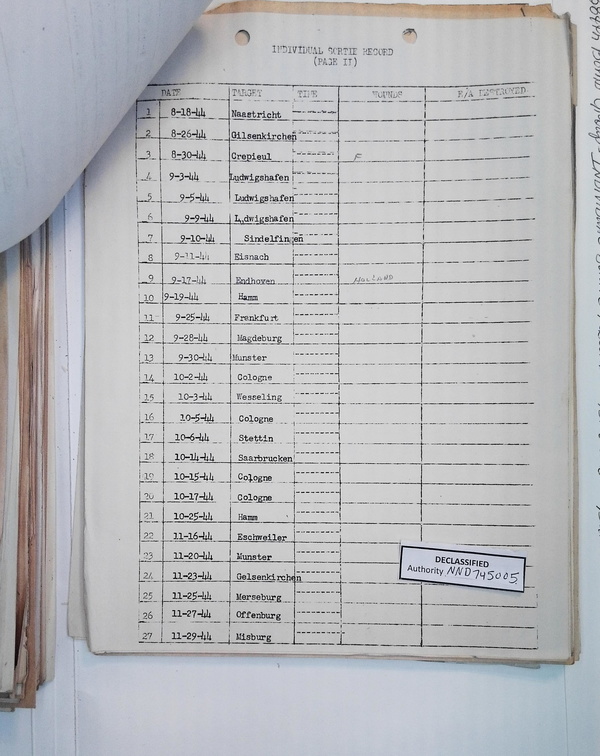 INDIVIDUAL SORTIE RECORD
(PAGE II)
DATE TARGET TIME WOUNDS E/A DESTROYED
1 8-18-44 Naastricht
2 8-26-44 Gilsenkirchen
3 8-30-44 Crepieul F
4 9-3-44 Ludwigshafen
5 9-5-44 Ludwigshafen
6 9-9-44 Ludwigshafen
7 9-10-44 Sindelfingen
8 9-11-44 Eisnach
9 9-17-44 Endhoven HOLLAND
10 9-19-44 Hamm
11 9-25-44 Frankfurt
12 9-28-44 Magdeburg
13 9-30-44 Munster
14 10-2-44 Cologne
15 10-3-44 Wesseling
16 10-5-44 Cologne
17 10-6-44 Stettin
18 10-14-44 Saarbrucken
19 10-15-44 Cologne
20 10-17-44 Cologne
21 10-25-44 Hamm
22 11-16-44 Eschweiler
23 11-20-44 Munster
24 11-23-44 Gelsenkirchen
25 11-25-44 Merseburg
26 11-27-44 Offenburg
27 11-29-44 Misburg
DECLASSIFIED
Authority NND745005